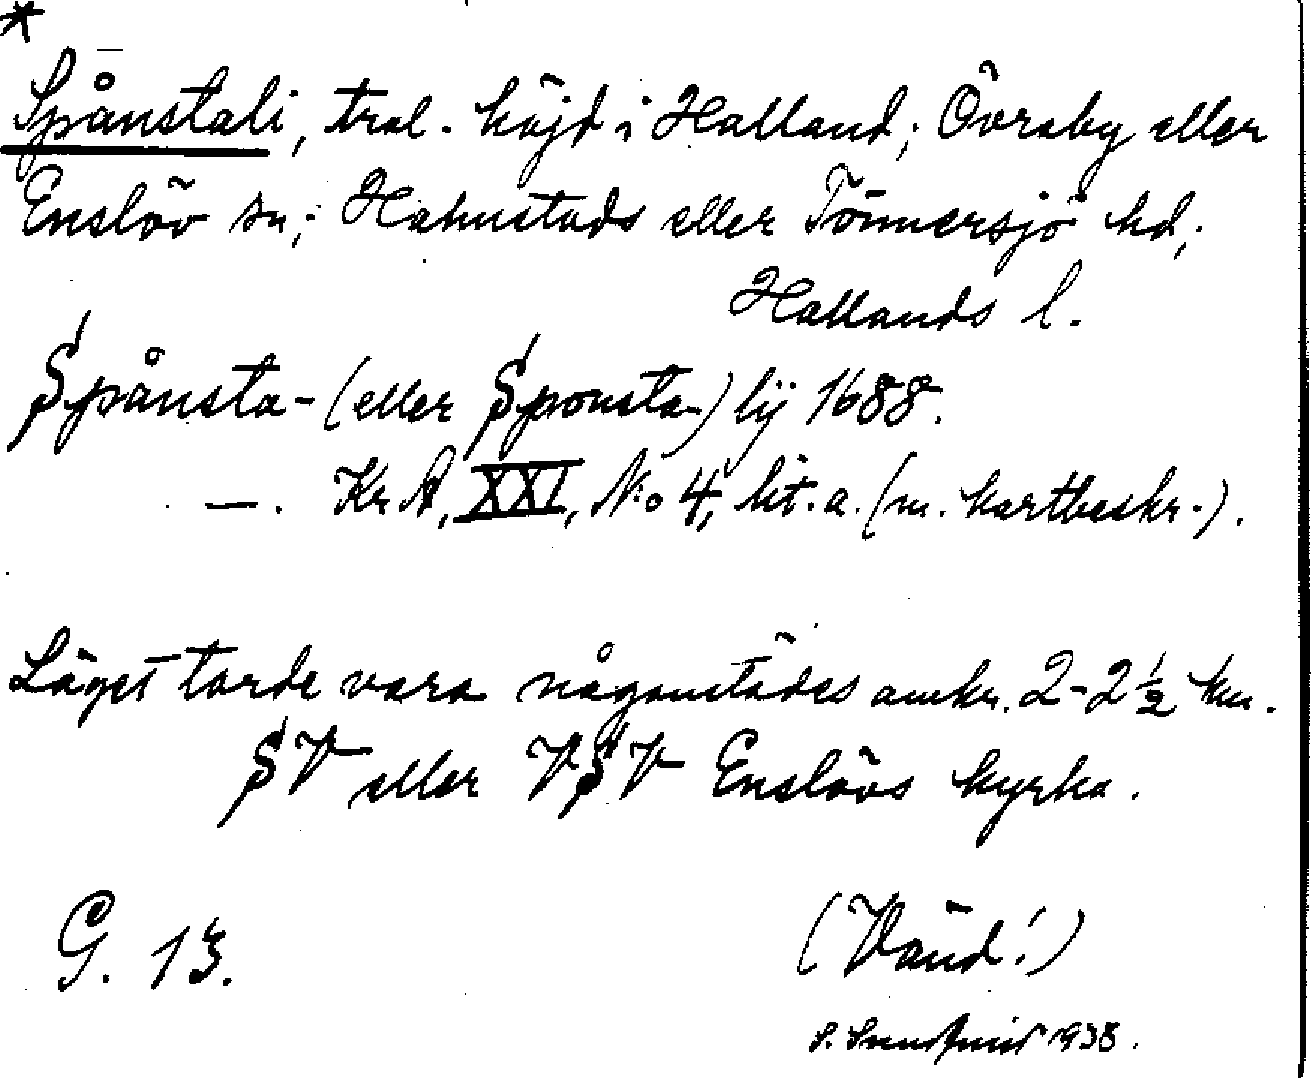 *
Spånstali, trol. höjd i Halland; Övraby eller
Enslöv sn; Halmstads eller Tönnersjö hd;
Hallands l.
Spånsta- (eller Sponsta-) lij 1688.
—. Kr A, XXI, No 4, lit. a. (m. kartbeskr.).
Läget torde vara någonstädes omkr. 2-2½ km.
SV eller VSV Enslövs kyrka.
G. 13.
(Vänd!)
S. 1938.